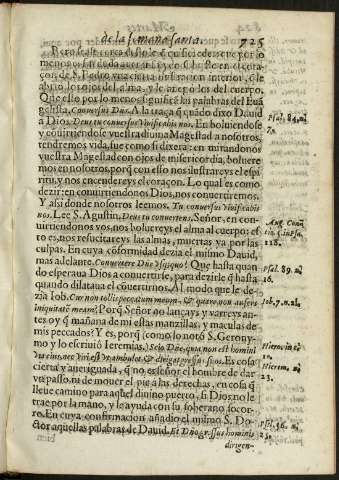 de la semana santa. 725
menos
coraçon de S. Pedro vna cierta inspiracion interior, q̃ le
abrio los ojos del alma, y le
Que esso por lo menos significã las palabras del Euã
gelista, Conuersus Dñs. A la traça q̃ quãdo dixo Dauid
a Dios. Deus tu conuersus viuificabis nos. En boluiendose
y conuirtiendose vuestra diuina Magestad a nosotros,
tendremos vida, fue como si dixera: en mirandonos
vuestra Magestad con ojos de misericordia, boluere
mos en nosotros, porq̃ con esso nos ilustrareys el espi
ritu, y nos encendereys el coraçon. Lo qual es como
dezir: en conuirtiendonos Dios, nos conuertiremos.
Y assi donde nosotros leemos. Tu conuersus viuificabis
nos. Lee S. Agustin, Deus tu conuertens. Señor, en con-
uirtiendonos vos, nos boluereys el alma al cuerpo: es
to es, nos resucitareys las almas, muertas ya por las
culpas. En cuya cõformidad dezia el mismo Dauid,
mas adelante. Conuertere Dñe vsquequo? Que hasta quan
do esperaua Dios a conuertirle, para dezirle q̃ hasta
quando dilataua el cõuertirnos. Al modo que le de-
zia Iob. Cur non tollis peccatum meum, & quare non aufers
iniquitatẽ meam? Porq̃ Señor no lançays y varreys an-
tes oy q̃ mañana de mi estas manzillas, y maculas de
mis peccados? Y es, porq̃ (como lo notò S. Gerony-
mo y lo escriuiò Ieremias.) Scio Dñe, quia non est homini
via eius, nec viri est vt ambulet & dirigat gressus suos. Es cosa
cierta y aueriguada, q̃ no es señor el hombre de dar
vn passo, ni de mouer el pie a las derechas, en cosa q̃
lleue camino para aquel diuino puerto, si Dios no le
trae por la mano, y le ayuda con su soberano socor-
ro. En cuya confirmacion añadio el mismo S. Do
ctor aquellas palabras de Dauid. Et Dño gressus hominis
dirigen-
Psal. 84. n.
7.
Aug. Con
in Psa.
118.
Psal. 89. n.
16.
Iob. 7. n. 21.
Hiero. in
Hierem.
23.
Psal. 36. n.
23.